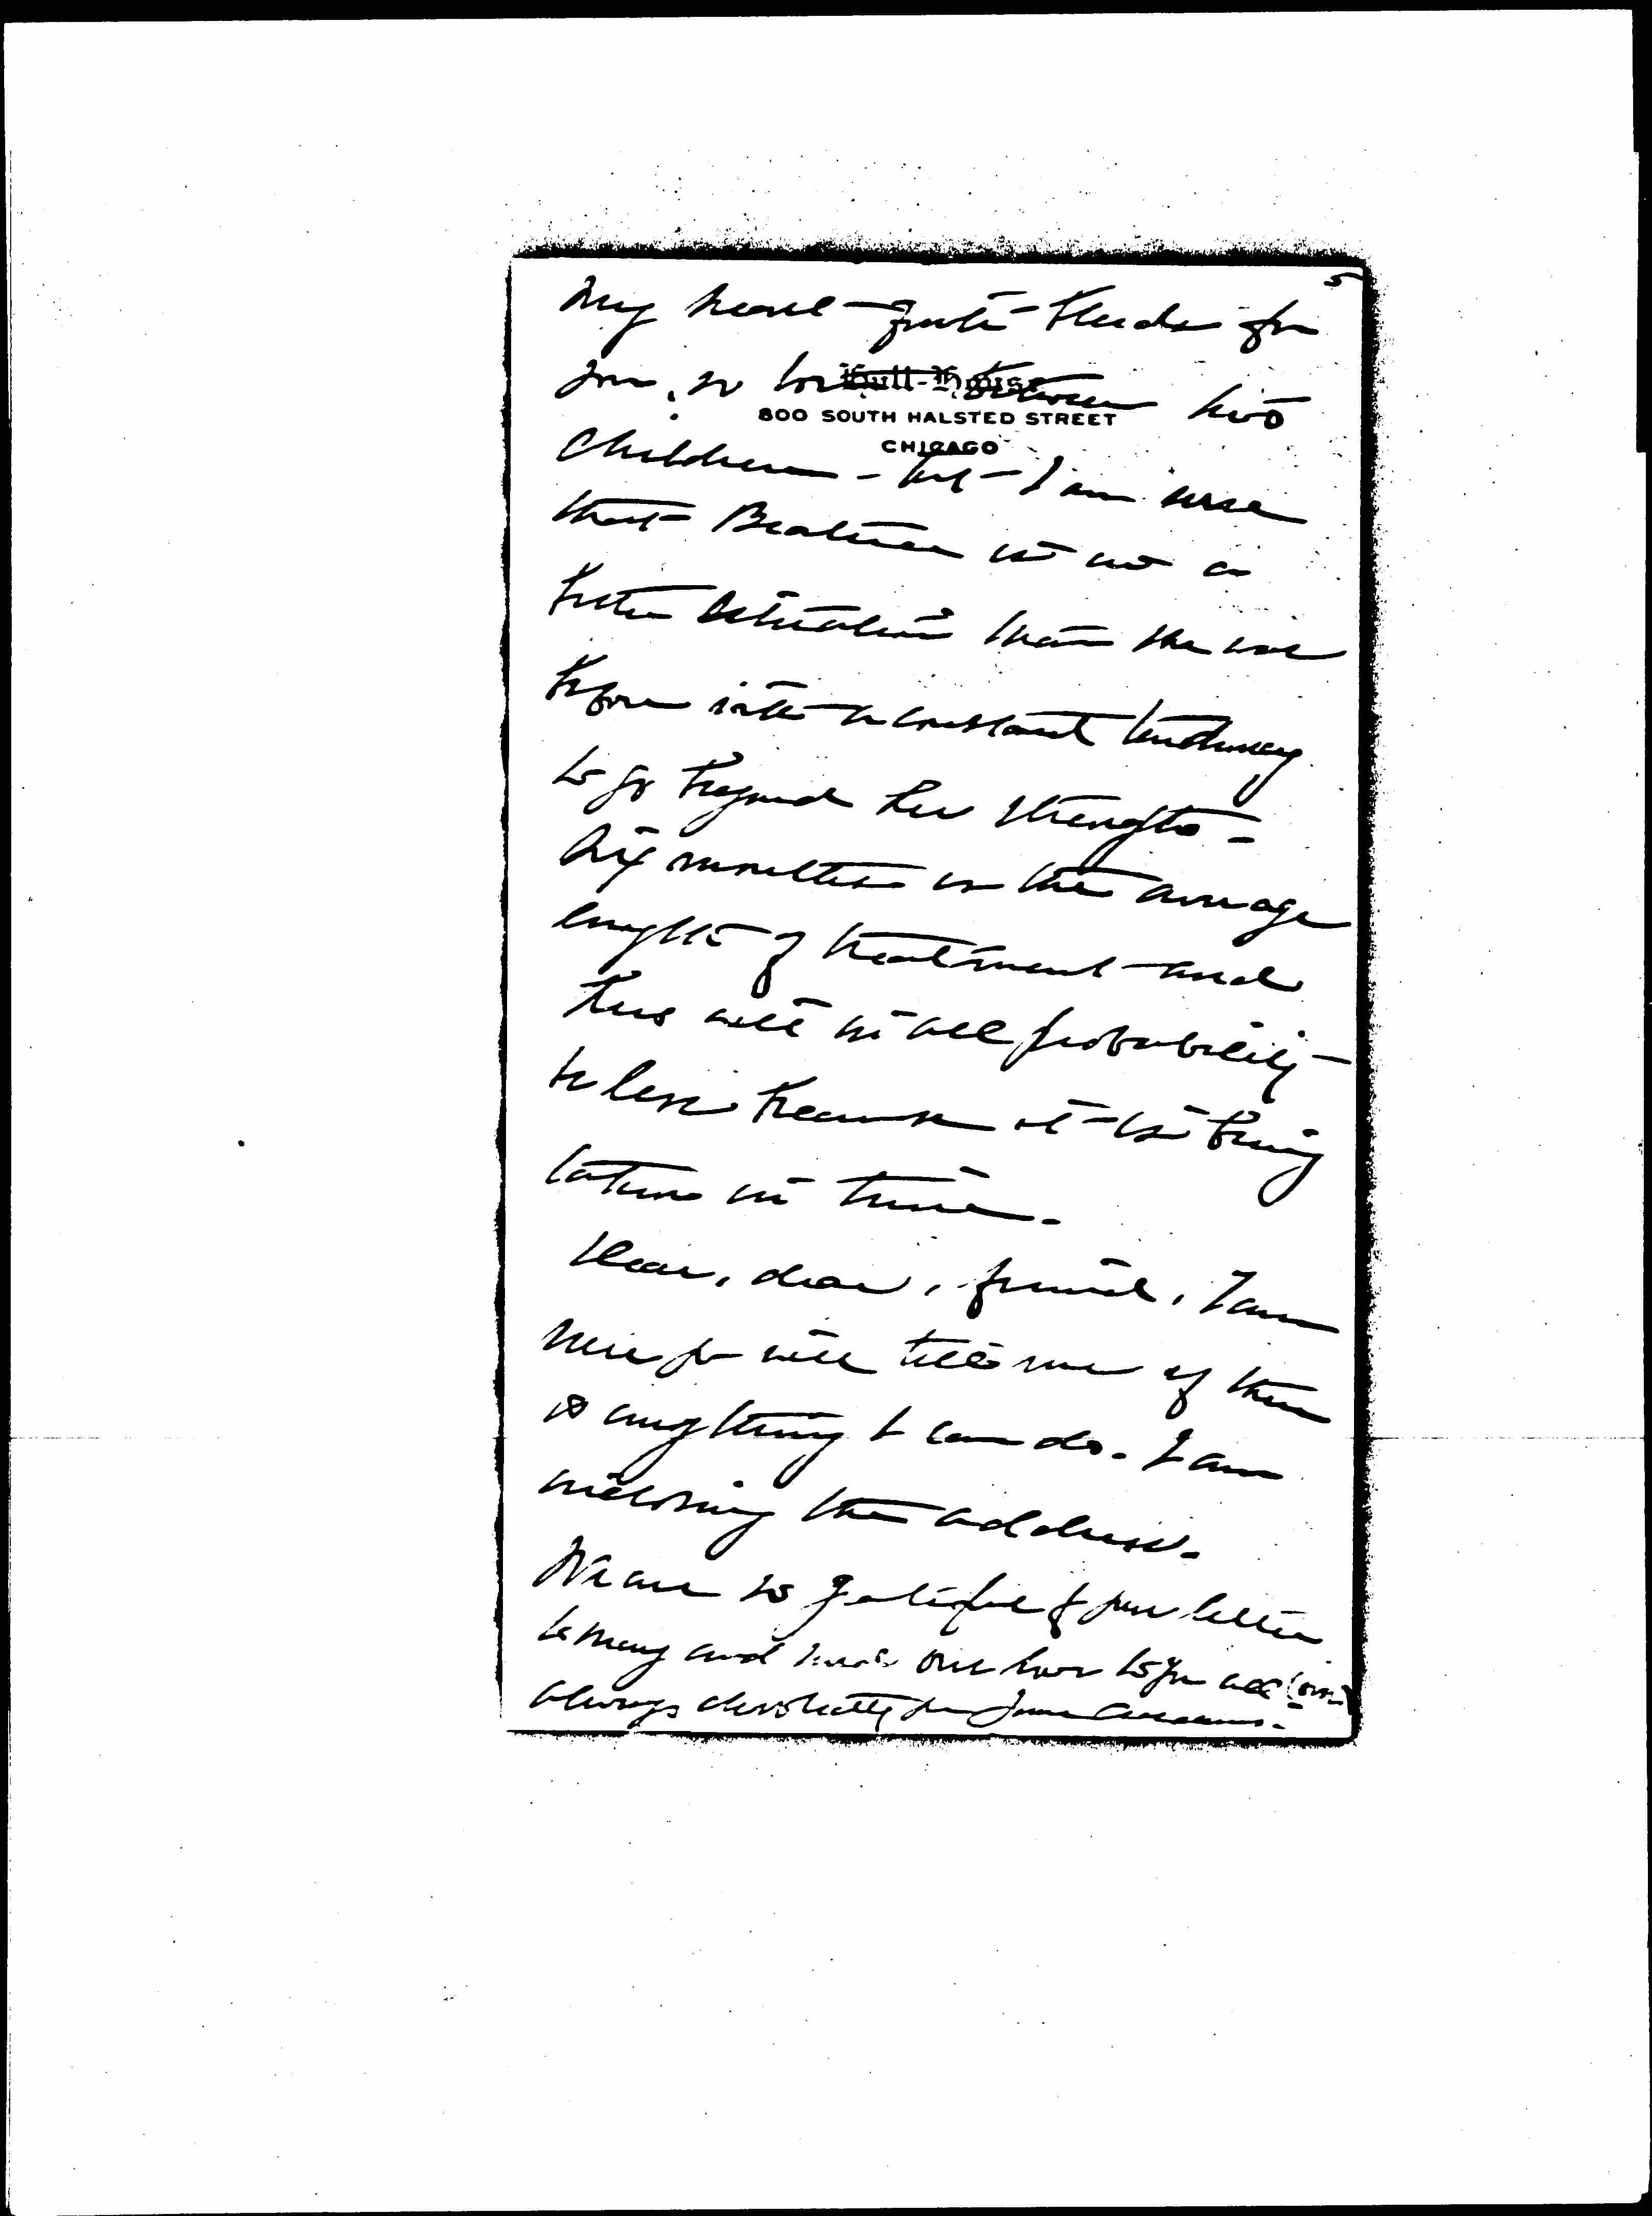 5
My heart quite bleeds for
you, so torn between two
Hull-House
800 SOUTH HALSTED STREET
CHICAGO
children - but I am sure
that Beatrice is in a
better situation than the one
before with a constant tendency
to go beyond her strength -
Six months is the average
length of treatment and
this will in all probability
be less because it is being
taken in time.
Dear, dear, friend, I am
sure you will tell me if there
is anything I can do. I am
inclosing the address.
We are so grateful for your letter
to Mary and send our love to you all
always devotedly yours Jane Addams.